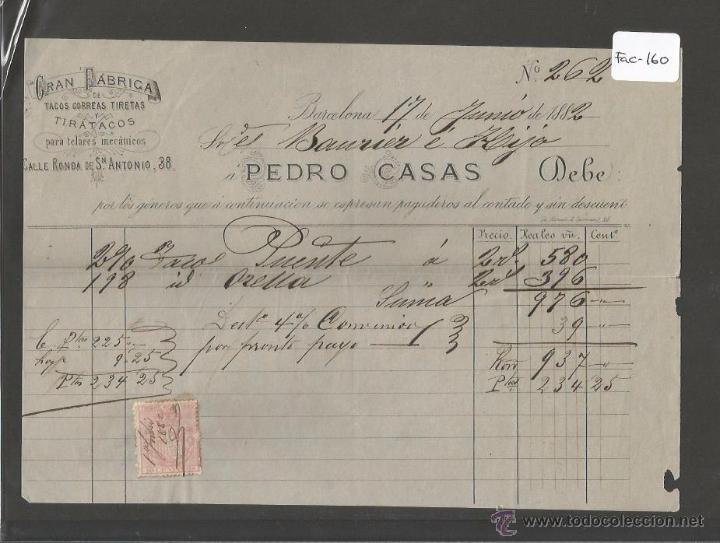 Fac-160
Nº 262
GRAN FÁBRICA
DE
TACOS CORREAS TIRETAS
Y
TIRATACOS
para telares mecánicos
CALLE RONDA DE Sn ANTONIO, 38.
Barcelona 17 de Junio de 1882
Sres é Hijo
á PEDRO CASAS Debe:
por los géneros que á continuación se espresan pagaderos al contado y sin descuento
Precio. Reales vn. Centº
290 Tacos Puente á 2 rs. 580
198 id Orella 2 rs. 396
Suma 976 "
4 % Convenido 39 "
por pronto pago 937 "
Ptas 234 25
Ptas 225 "
9 25
Ptas 234 25
1882
www.todocoleccion.net